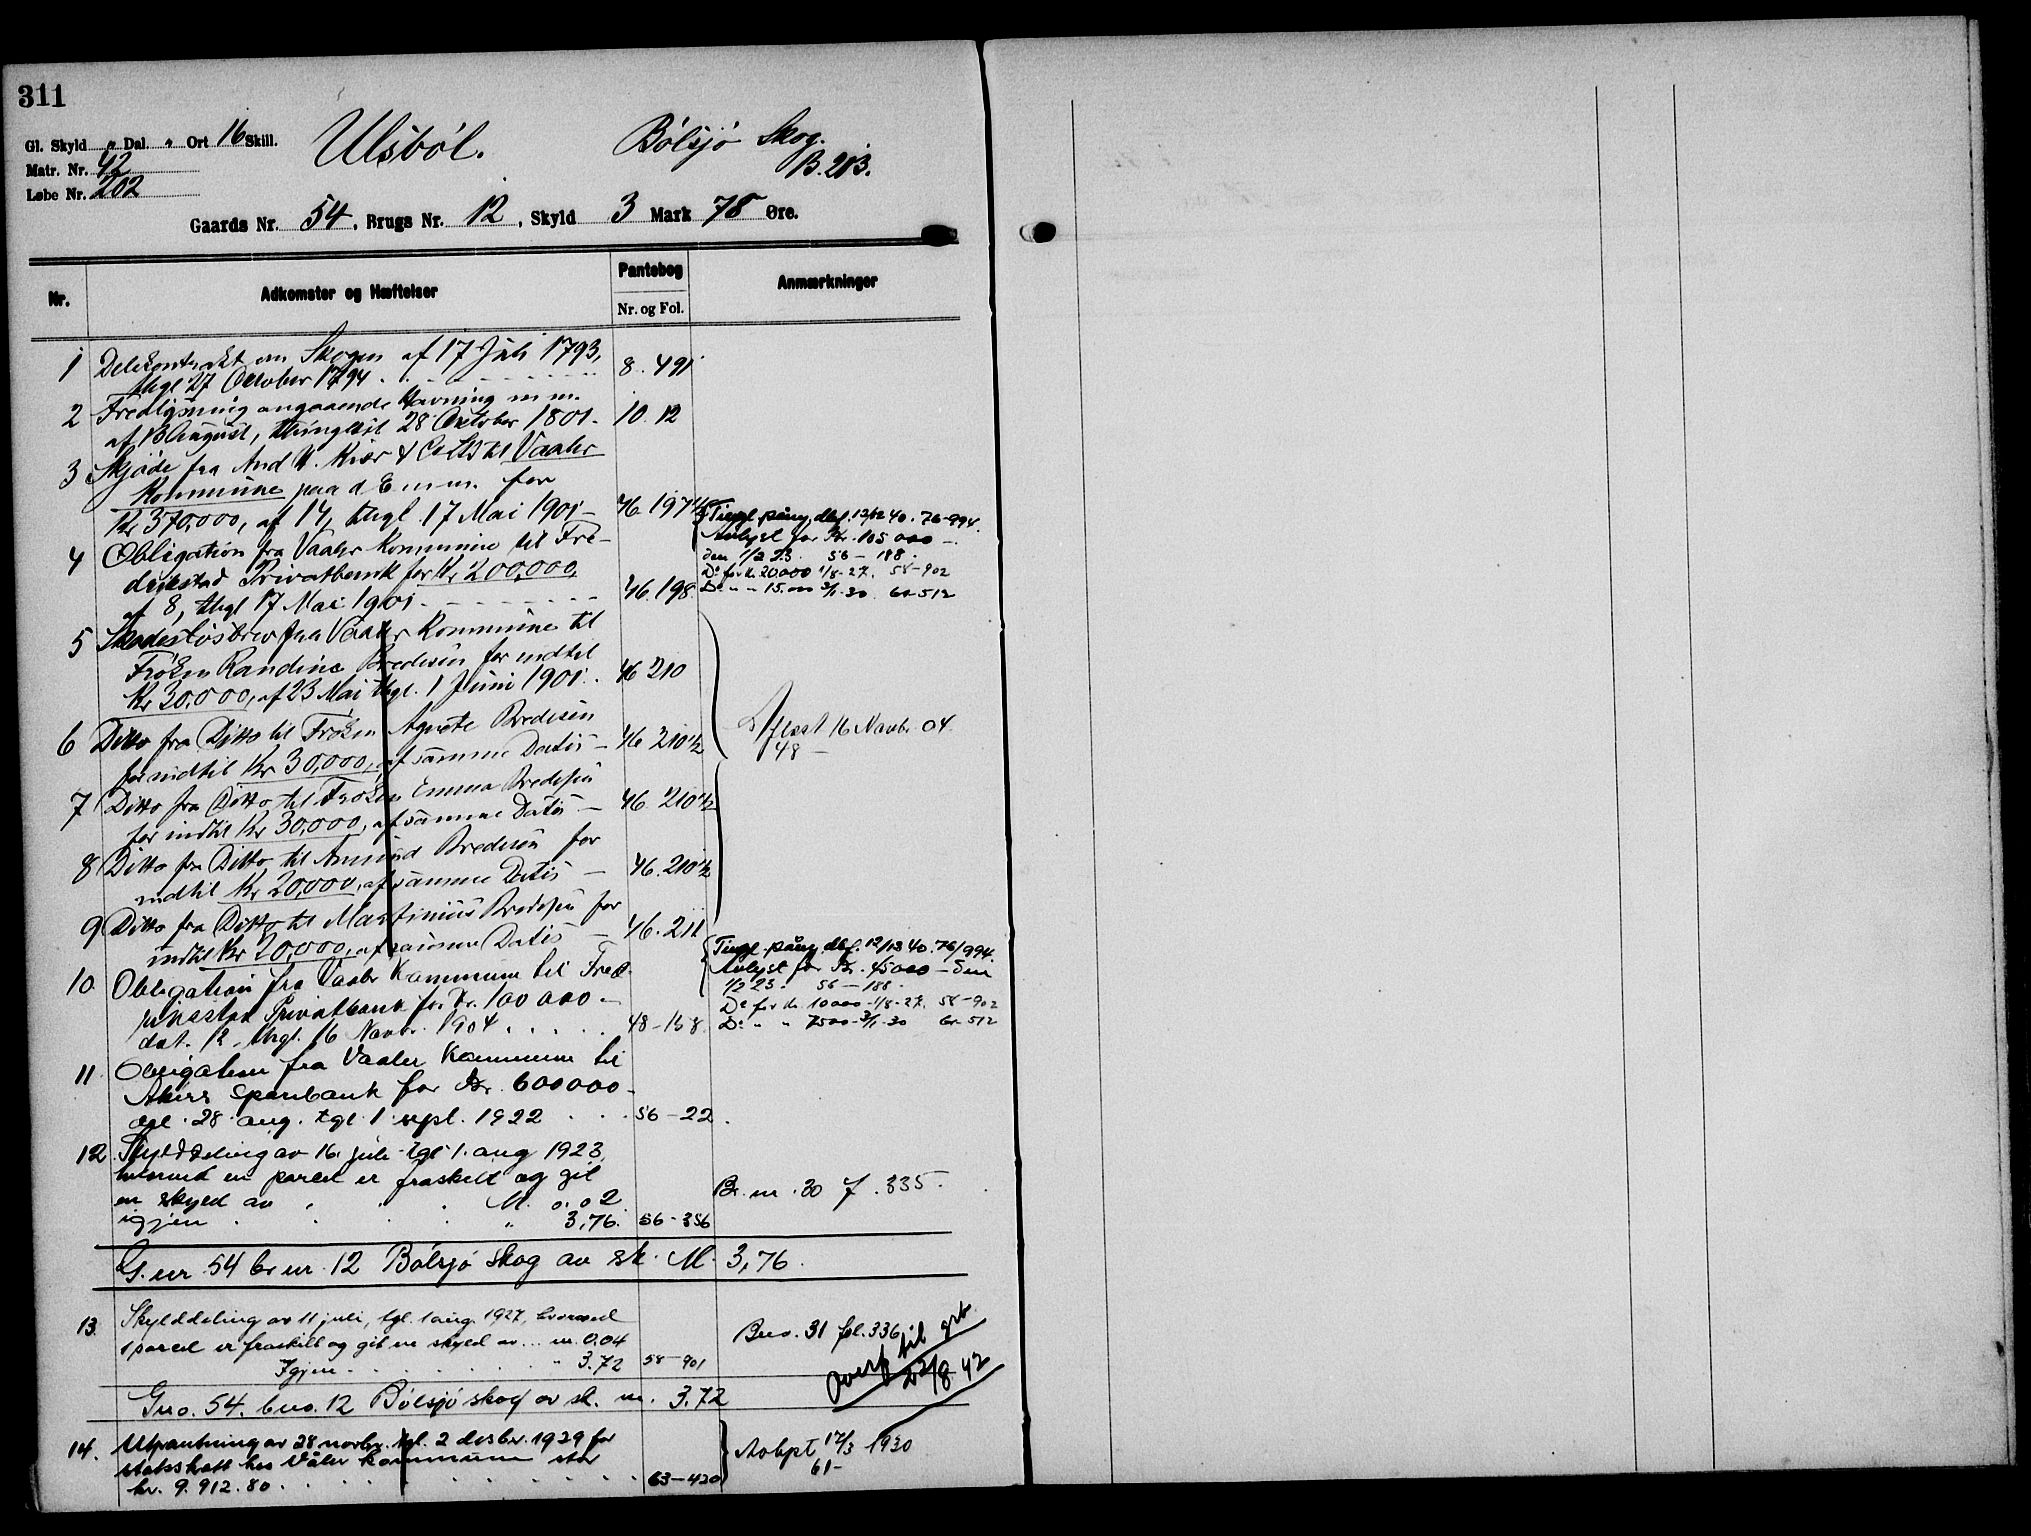 311
Gl. Skyld " Dal. " Ort 16 Skill.
Matr. Nr. 42
Løbe Nr. 202
Ulsbøl. Bølsjø Skog.
B. 213.
Gaards Nr. 54, Brugs Nr. 12, Skyld 3 Mark 78 Øre.
Nr. Adkomster og Hæftelser Pantebog Nr. og Fol. Anmærkninger
1 Delekontrakt om Skogen af 17 Juli 1793,
thgl 27 Oktober 1794. 8. 491
2 Fredlysning angaaende Havning m.m.
af 13 August, thinglæst 28 Oktober 1801. 10. 12
3 Skjøde fra And H. Kiær & Co Ltd til Vaaler
Kommune paa d E m.m. for
Kr 370,000, af 14, thgl 17 Mai 1901 – 46. 197½
4 Obligation fra Vaaler Kommune til Fre-
drikstad Privatbank for Kr 200,000,
af 8, thgl 17 Mai 1901. 46. 198
Tingl. påny dbf. 12/12 40. 76-994.
Avlyst for Kr. 105 000 –.
den 1/2 23. 56 – 188.
Do for k. 20000 1/8-27. 58-902
Do " " 15.000 3/1-30 61-512
5 Skadesløsbrev fra Vaaler Kommune til
Frøken Randine Bredesen for indtil
Kr 30,000, af 23 Mai thgl. 1 Juni 1901. 46 210
6 Ditto fra Ditto til Frøken Agnete Bredesen
for indtil Kr 30,000, af samme Datis – 46 210½
Aflæst 16 Novbr. 04.
48 –
7 Ditto fra Ditto til Frøken Emma Bredesen
for indtil Kr 30,000, af samme Datis – 46. 210½
8 Ditto fra Ditto til Amund Bredesen for
indtil Kr 20,000, af samme Datis – 46. 210½
9 Ditto fra Ditto til Martinius Bredesen for
indtil Kr 20,000, af samme Datis – 46. 211
10. Obligation fra Vaaler Kommune til Fred-
rikstad Privatbank for Kr. 100 000 –
dat. 12, thgl. 16 Novbr. 1904 48-158
Tingl. påny dbf. 12/12 40. 76/994.
Avlyst for Kr. 45000 – den
1/2 23. 56 – 188.
Do for k. 10000 – 1/8-27. 58-902
Do " " 7500 – 3/1-30 61-512
11. Obligation fra Vaaler Kommune til
Akers Sparebank for Kr. 600000 –
dat. 28. aug. tgl. 1. sept. 1922 56-22.
12. Skylddeling av 16. juli tgl. 1. aug 1923,
hvorved en parcel er fraskilt og git
en skyld av M. 0.02.
igjen " 3,76. 56-356
Br. nr. 30 f. 335.
G. nr. 54 br nr. 12 Bølsjø skog av sk. M. 3,76.
13. Skylddeling av 11 juli, tgl. 1 aug. 1927, hvorved
1 parcel er fraskilt og git en skyld av... m. 0.04
Igjen " 3.72 58-901
Bno. 31 fol. 336.
Overf til grb
22/8 42
Gno. 54. bno. 12 Bølsjø skog av sk. m. 3.72
14. Utpantning av 28 novbr. tgl. 2 desbr. 1929 for
statsskatt hos Våler kommune stor
kr. 9.912.80 63-420
Avlyst 17/3 1930
61-